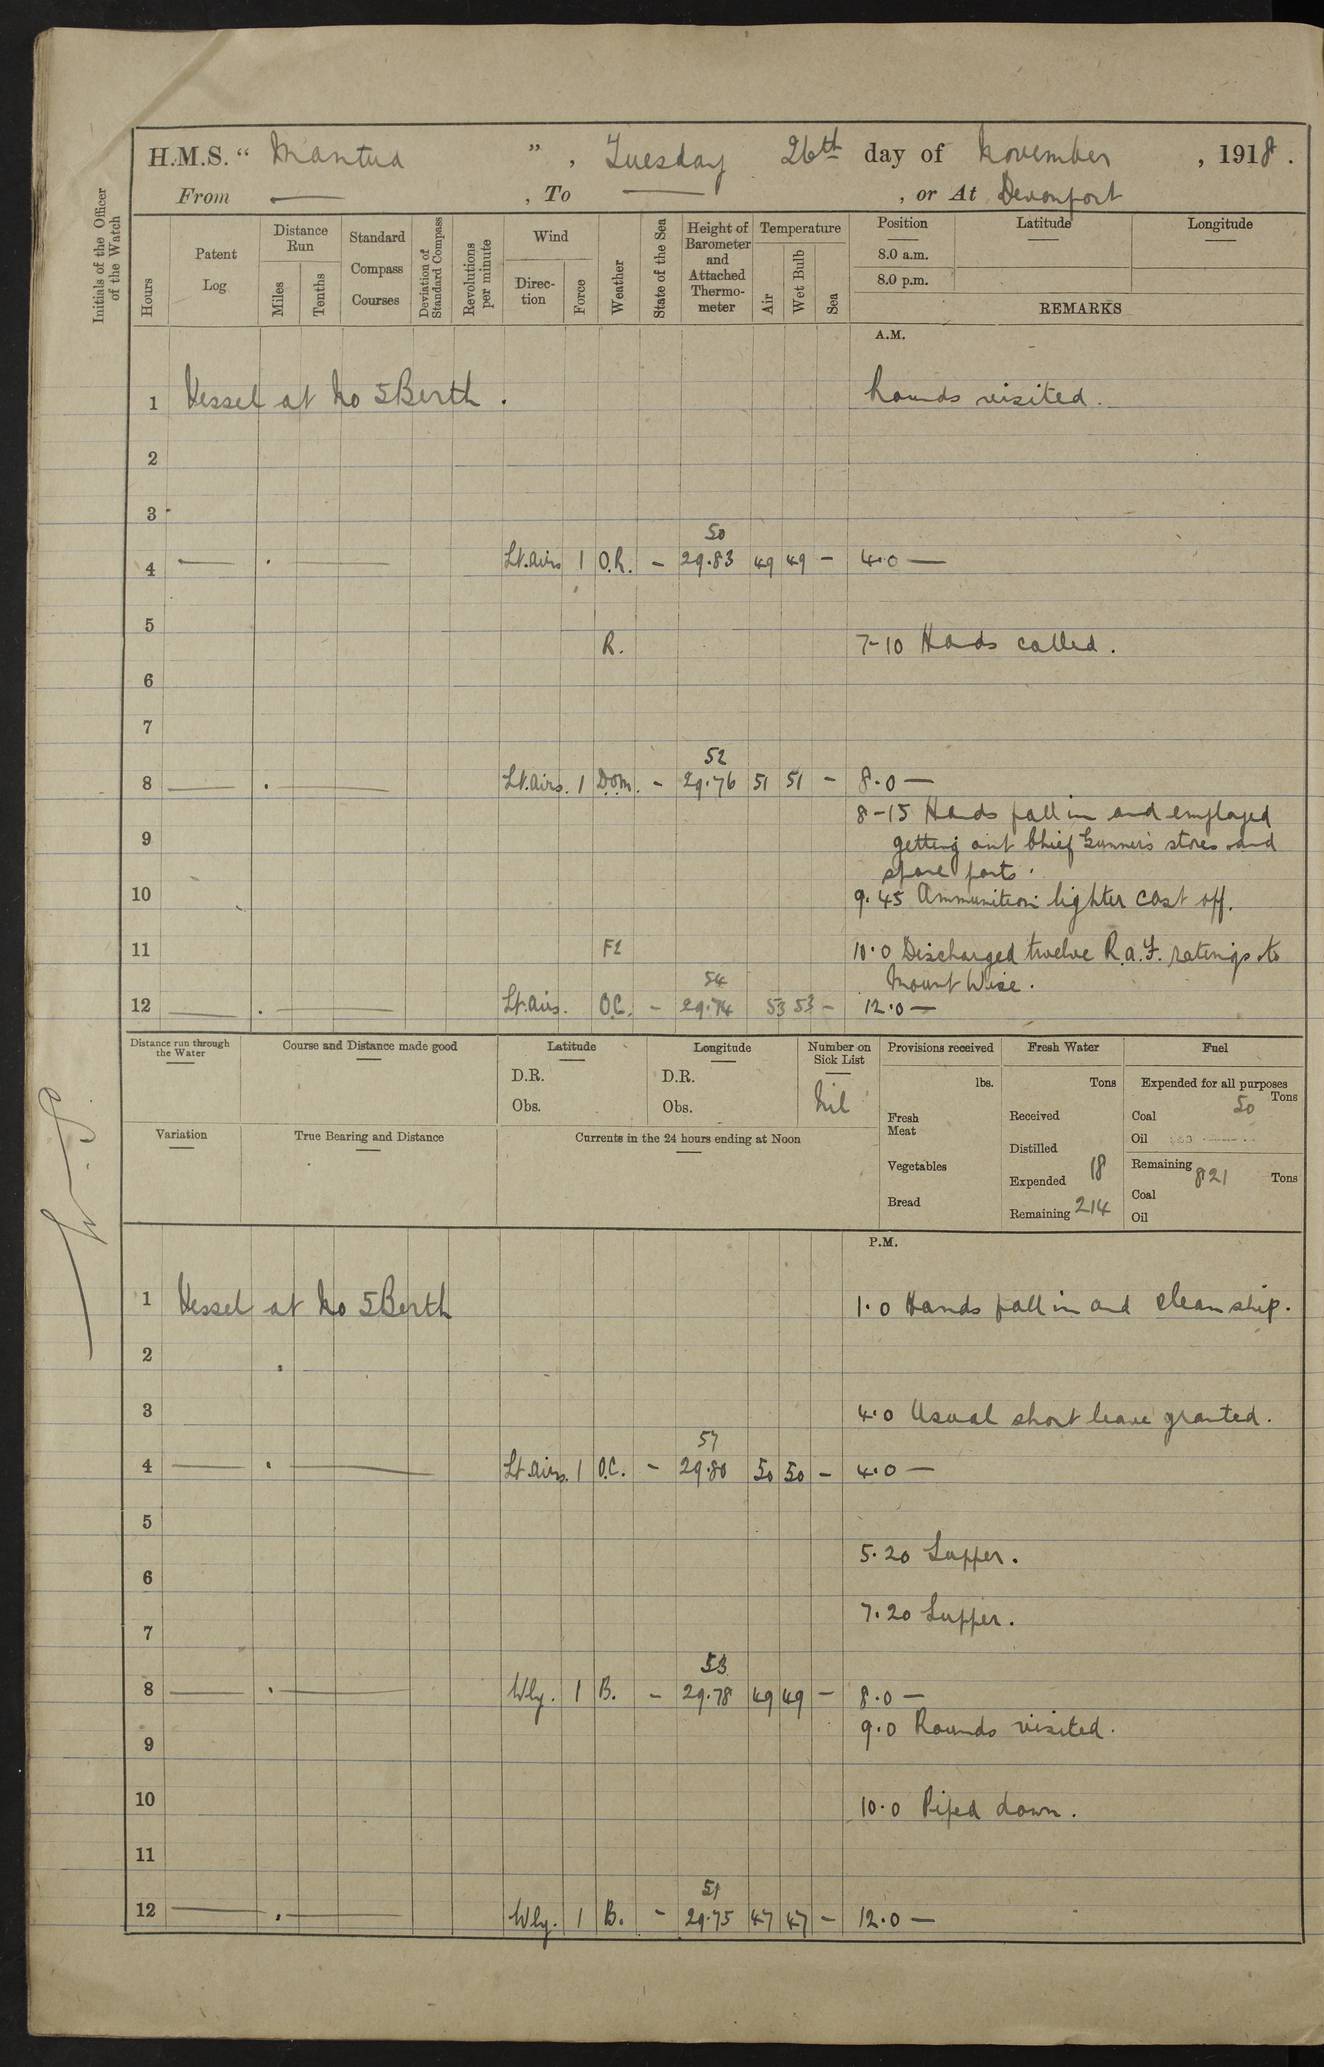 H.M.S. " Mantua " , Tuesday 26th day of November , 1918 .
From — , To — , or At Devonport
Initials of the Officer of the Watch
Hours
Patent Log
Distance Run
Miles
Tenths
Standard Compass Courses
Deviation of Standard Compass
Revolutions per minute
Wind
Direction
Force
Weather
State of the Sea
Height of Barometer and Attached Thermometer
Temperature
Air
Wet Bulb
Sea
Position Latitude Longitude
8.0 a.m.
8.0 p.m.
REMARKS
A.M.
1 Vessel at No 5 Berth . Rounds visited .
2
3
50
4 — . — Lt. airs 1 O.R. – 29.83 49 49 – 4.0 —
5
R. 7-10 Hands called .
6
7
52
8 — . — Lt. airs. 1 D.O.M. – 29.76 51 51 – 8.0 —
8-15 Hands fall in and employed
9 getting out Chief Gunner's stores and
spare parts .
10 9.45 Ammunition lighter cast off.
11 F2 10.0 Discharged twelve R.A.F. ratings to
54 Mount Wise .
12 — . — Lt. airs. O.C. – 29.74 53 53 – 12.0 —
Distance run through the Water
Course and Distance made good
Latitude
D.R.
Obs.
Longitude
D.R.
Obs.
Number on Sick List
Nil
Provisions received
lbs.
Fresh Meat
Vegetables
Bread
Fresh Water
Tons
Received
Distilled
Expended 18
Remaining 214
Fuel
Expended for all purposes
Tons
Coal 50
Oil
Remaining 821 Tons
Coal
Oil
Variation
True Bearing and Distance
Currents in the 24 hours ending at Noon
P.M.
1 Vessel at No 5 Berth 1.0 Hands fall in and clean ship.
2
3 4.0 Usual short leave granted .
57
4 — . — Lt. airs. 1 O.C. – 29.80 50 50 – 4.0 —
5
5.20 Supper .
6
7.20 Supper .
7
53
8 — . — Wly. 1 B. – 29.78 49 49 – 8.0 —
9.0 Rounds visited .
9
10 10.0 Piped down .
11
51
12 — . — Wly. 1 B. – 29.75 47 47 – 12.0 —